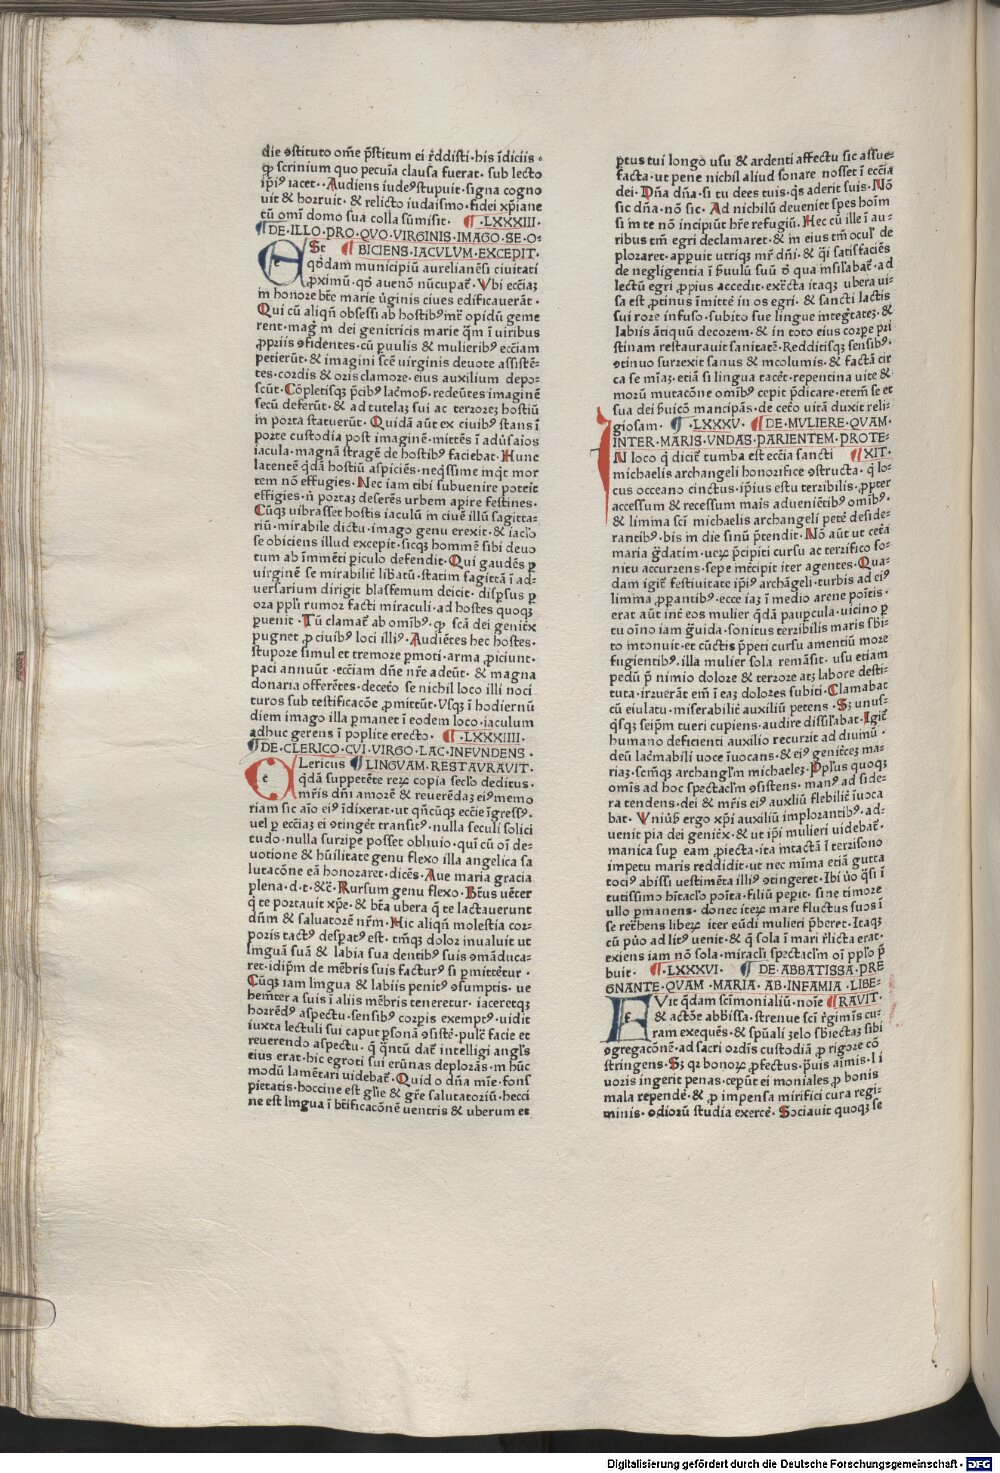 die ꝯstituto om̄e p̄stitum ei r̄ddisti·his īdiciis·
ꝙ scrinium quo pecuīa clausa fuerat·sub lecto
ip̄iꝰ iacet··Audiens iudeꝰstupuit·signa cogno
uit & horruit·& relicto iudaismo·fidei xp̄iane
cū omī domo sua colla sūmisit. ¶·LXXXIII·
¶DE·ILLO·PRO·QVO·VIRGINIS·IMAGO·SE·O·
eSt ¶BICIENS·IACVLVM·EXCEPIT·
qd̄dam municipiū aurelianēsi ciuitati
ꝓximū·qd̄ auenō nūcupat̄·Vbi ecc̄iaꝫ
in honore bt̄e marie ūginis ciues edificauerāt·
Qui cū aliqn̄ obsessi ab hostibꝰmr̄ opidū geme
rent·maḡ in dei genitricis marie q̄m ī uiribus
ꝓpriis ꝯfidentes·cū puulis & mulieribꝰ ecc̄iam
petierūt·& imagini sc̄e uirginis deuote assistē-
tes·cordis & oris clamore·eius auxilium depo-
scūt·Cōpletisqꝫ p̄cibꝰ lac̄mosꝭ·redeūtes imaginē
secū deferūt·& ad tutelaꝫ sui ac terroreꝫ hostiū
in porta statuerūt·Quidā aūt ex ciuibꝰ stans ī
porte custodia post imaginē·mittēs ī adūsaios
iacula·magnā stragē de hostibꝰ faciebat·Hunc
latentē qd̄ā hostiū aspiciēs·neq̄ssime inqt̄ mor
tem nō effugies·Nec iam tibi subuenire poteīt
effigies·ni portaꝫ deserēs urbem apire festines·
Cūqꝫ uibrasset hostis iaculū in ciuē illū sagitta-
riū·mirabile dictu·imago genu erexit·& iacl̄o
se obiciens illud excepit·sicqꝫ hommē sibi deuo
tum ab īmmēti piculo defendit·Qui gaudēs ꝑ
uirginē se mirabilit̄ lib̄atū·statim fagittā ī ad-
uersarium dirigit blasfemum deicit·disp̄sus ꝑ
ora ppl̄i rumor facti miraculi·ad hostes quoqꝫ
ꝑuenit·Tū clamat̄ ab omibꝰ·ꝙ sc̄ā dei genit̄x
pugnet ꝓ ciuibꝰ loci illiꝰ·Audiētes hec hostes·
stupore simul et tremore ꝑmoti·arma ꝓiciunt·
paci annuūt·ecc̄iam dn̄e nr̄e adeūt·& magna
donaria offerētes·decet̄o se nichil loco illi noci
turos sub testificacōe ꝓmittūt·Vsqꝫ ī hodiernū
diem imago illa ꝑmanet ī eodem loco·iaculum
adhuc gerens ī poplite erecto· ¶·LXXXIIII·
¶DE·CLERICO·CVI·VIRGO·LAC·INFVNDENS·
cLericus ¶LINGVAM·RESTAVRAVIT·
qd̄ā suppetēte reꝝ copia secl̄o deditus·
mr̄is dn̄i amorē & reuerēdaꝫ eiꝰmemo
riam sic aīo eiꝰ īdixerat·ut qn̄cūqꝫ ecc̄ie īgressꝰ·
uel ꝑ ecc̄iaꝫ ei ꝯtinget̄ transitꝰ·nulla seculi solici
tudo·nulla surripe posset obliuio·quī cū oī de-
uotione & hūilitate genu flexo illa angelica sa
lutacōne eā honoraret·dicēs·Aue maria gracia
plena·d·t·&c̄·Rursum genu flexo·Bt̄us uēter
q̄ te portauit xp̄e·& bt̄a ubera q̄ te lactauerunt
dn̄m & saluatorē nr̄m·Hic aliqn̄ molestia cor-
poris tactꝰ despat̄ꝰ est·tm̄qꝫ dolor inualuit ut
linguā suā & labia sua dentibꝰ suis ꝯmāduca-
ret·idip̄m de mēbris suis facturꝰ si ꝑmittētur·
Cūqꝫ iam lingua & labiis penitꝰ ꝯsumptis·ue
hem̄ter a suis ī aliis mēbris teneretur·iaceretqꝫ
horrēdꝰ aspectu·sensibꝰ corpis exemptꝰ·uidit
iuxta lectuli sui caput ꝑsonā ꝯsistē·pulc̄ facie et
reuerendo aspectu·q̄ q̄ntū dat̄ intelligi angl̄s
eius erat·hic egroti sui erūnas deplorās·in hūc
modū lamētari uidebat̄·Quid o dn̄a mīe·fonſ
pietatis·hoccine est gl̄ie & gr̄e salutatoriū·hecci
ne est lingua ī bt̄ificacōnē uentris & uberum et
ptus tui longo usu & ardenti affectu sic assue-
facta·ut pene nichil aliud sonare nosset ī ecc̄ia
dei·Dn̄a dn̄a·si tu dees tuis·q̄s aderit suis·Nō
sic dn̄a·nō sic·Ad nichilū deueniet spes hoīm
si in te nō incipiūt hr̄e refugiū·Hec cū ille ī au-
ribus tm̄ egri declamaret·& in eius tm̄ ocul̄ de
plorazet·appuit utriqꝫ mr̄ dn̄i·& q̄i satisfaciēs
de negligentia ī p̄uulū suū qd̄ qua īnsil̄abat̄·ad
lectū egri ꝓpius accedit·extc̄ta itaqꝫ ubera ui-
sa est ꝓtinus īmittē in os egri·& sancti lactis
sui rore infuso·subito sue lingue inteḡtateꝫ·&
labiis ātiquū decorem·& in toto eius corpe pri
stinam restaurauit sanitatē·Redditisqꝫ sensibꝰ·
ꝯtinuo surrexit sanus & incolumis·& factā cir
ca se mīaꝫ·etiā si lingua tacēt·repentina uite &
morū mutacōne omibꝰ cepit p̄dicare·etem̄ se et
sua dei p̄uicō mancipās·de cet̄o uitā duxit reli-
giosam· ¶·LXXXV·¶DE·MVLIERE·QVAM·
INTER·MARIS·VNDAS·PARIENTEM·PROTE-
IN loco q̄ dicit̄ tumba est ecc̄ia sancti ¶XIT·
michaelis archangeli honorifice ꝯstructa·q̄ lo-
cus occeano cinctus·ip̄ius estu terribilis·ꝓpter
accessum & recessum maīs adueniētibꝰ omībꝰ·
& limina sc̄i michaelis archangeli petē deside-
rantibꝰ·bis in die sinū p̄tendit·Nō aūt ut ceta
maria g̈datim·ueꝝ p̄cipiti cursu ac terrifico fo-
nitu accurrens·sepe int̄cipit iter agentes·Qua-
dam igit̄ festiuitate ip̄iꝰ archāgeli·turbis ad eiꝰ
limina ꝓpantibꝰ·ecce iaꝫ ī medio arene poītis·
erat aūt int̄ eos mulier qd̄ā paupcula·uicino ꝑ
tu oīno iam g̈uida·sonitus terribilis maris sb̄i-
to intonuit·et cūctis p̄peti cursu amentiū more
fugientibꝰ·illa mulier sola remāsit·usu etiam
pedū p̄ nimio dolore & terrore atqꝫ labore desti-
tuta·irruerāt em̄ ī eaꝫ dolores subiti·Clamabat
cū eiulatu·miserabilit̄ auxiliū petens·Sꝫ unus-
q̄sqꝫ seip̄m tueri cupiens·audire dissil̄abat·Igit̄
humano deficienti auxilio recurrit ad diuinū·
deū lac̄mabili uoce īuocans·& eiꝰ genit̄ceꝫ ma-
riaꝫ·sc̄mqꝫ archangl̄m michaeleꝫ·Ppl̄us quoqꝫ
omīs ad hoc spectacl̄m ꝯsistens·manꝰ ad side-
ra tendens·dei & mr̄is eiꝰ auxliū flebilit̄ īuoca
bat·Vniūs̄ ergo xp̄i auxiliū implorantibꝰ·ad-
uenit pia dei genit̄x·& ut ip̄i mulieri uidebat̄·
manica sup̄ eam ꝓiecta·ita intactā ī terrisono
impetu maris reddidit·ut nec mīma etiā gutta
tociꝰ abissi uestimēta illiꝰ ꝯtingeret·Ibi ūo q̄si ī
tutissimo hītacl̄o poīta·filiū pepit·sine timore
ullo ꝑmanens·donec iteꝝ mare fluctus suos ī
se ret̄hens libeꝝ iter eūdi mulieri p̄beret·Itaqꝫ
cū pūo ad litꝰ uenit·& q̄ sola ī mari r̄licta erat·
exiens iam nō sola·miracl̄i spectacl̄m oī ppl̄o p̄
buit· ¶·LXXXVI· ¶DE·ABBATISSA·PRE
GNANTE·QVAM·MARIA·AB·INFAMIA·LIBE-
fVit qd̄am sc̄imonialiū·noīe ¶RAVIT·
& actōe abb̄issa·strenue sc̄i r̄giminis cu-
ram exequēs·& sp̄uali zelo sb̄iectaꝫ sibi
ꝯgregacōnē·ad sacri ordīs custodiā ꝓ rigore cō
stringens·Sꝫ qꝛ bonoꝝ ꝓfectus·p̄uis aīmis·li
uoris ingerit penas·cepūt ei moniales ꝓ bonis
mala rependē·& ꝓ impensa mirifici cura regi-
minis·odiorū studia exercē·Sociauit quoqꝫ se
Digitalisierung gefördert durch die Deutsche Forschungsgemeinschaft - DFG